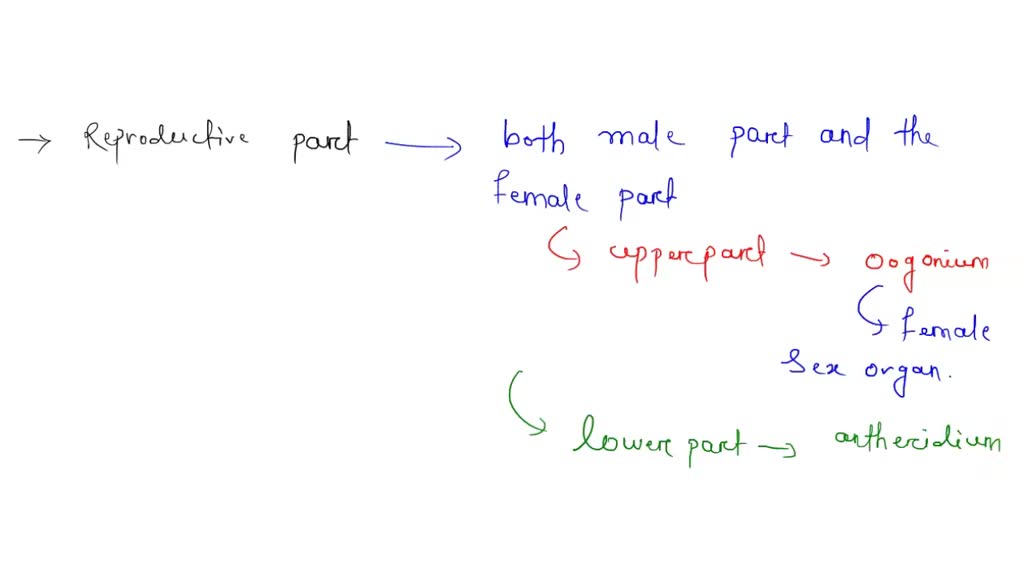 → Reproductive part → both male part and the
female part
↳ upper part → oogonium
↳ female
sex organ.
↳ lower part → antheridium